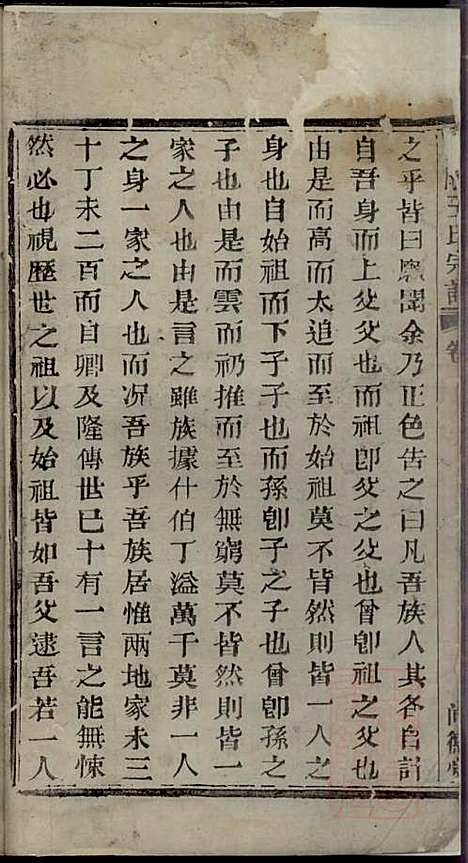 王氏宗譜 卷
之乎皆曰願聞余乃正色告之曰凡吾族人其各自計
自吾身而上父父也而祖卽父之父也曾卽祖之父也
由是而高而太追而至於始祖莫不皆然則皆一人之
身也自始祖而下子子也而孫卽子之子也曾卽孫之
子也由是而雲而礽推而至於無窮莫不皆然則皆一
家之人也由是言之雖族據什伯丁溢萬千莫非一人
之身一家之人也而況吾族乎吾族居惟兩地家未三
十丁未二百而自卿及隆傳世巳十有一言之能無悚
然必也視歷世之祖以及始祖皆如吾父逮吾若一人